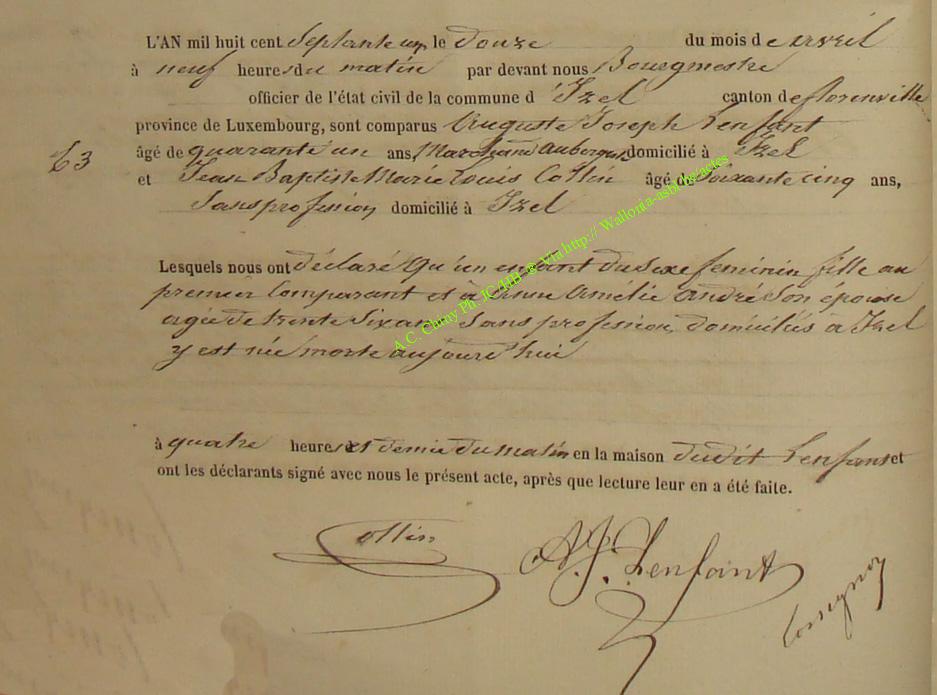 L'AN mil huit cent septante un le douze du mois d'avril
à neuf heures du matin par devant nous Bourgmestre
officier de l'état civil de la commune d'Izel canton de florenville
province de Luxembourg, sont comparus Auguste Joseph Lenfant
63 âgé de quarante un ans, Marchand Aubergiste domicilié à Izel
et Jean Baptiste Marie Louis Collin âgé de Soixante cinq ans,
Sans profession domicilié à Izel
Lesquels nous ont déclaré Qu'un enfant du Sexe feminin fille au
premier Comparant et à Anne Amélie andré Son épouse
agée de trente Six ans Sans profession, domiciliés à Izel
y est née morte aujourd'hui
à quatre heures et demie du matin en la maison dudit Lenfant et
ont les déclarants signé avec nous le présent acte, après que lecture leur en a été faite.
Collin A J. Lenfant Rossignon
A.C. Chiny Ph. JC via http:// Wallonia-asbl.be/actes